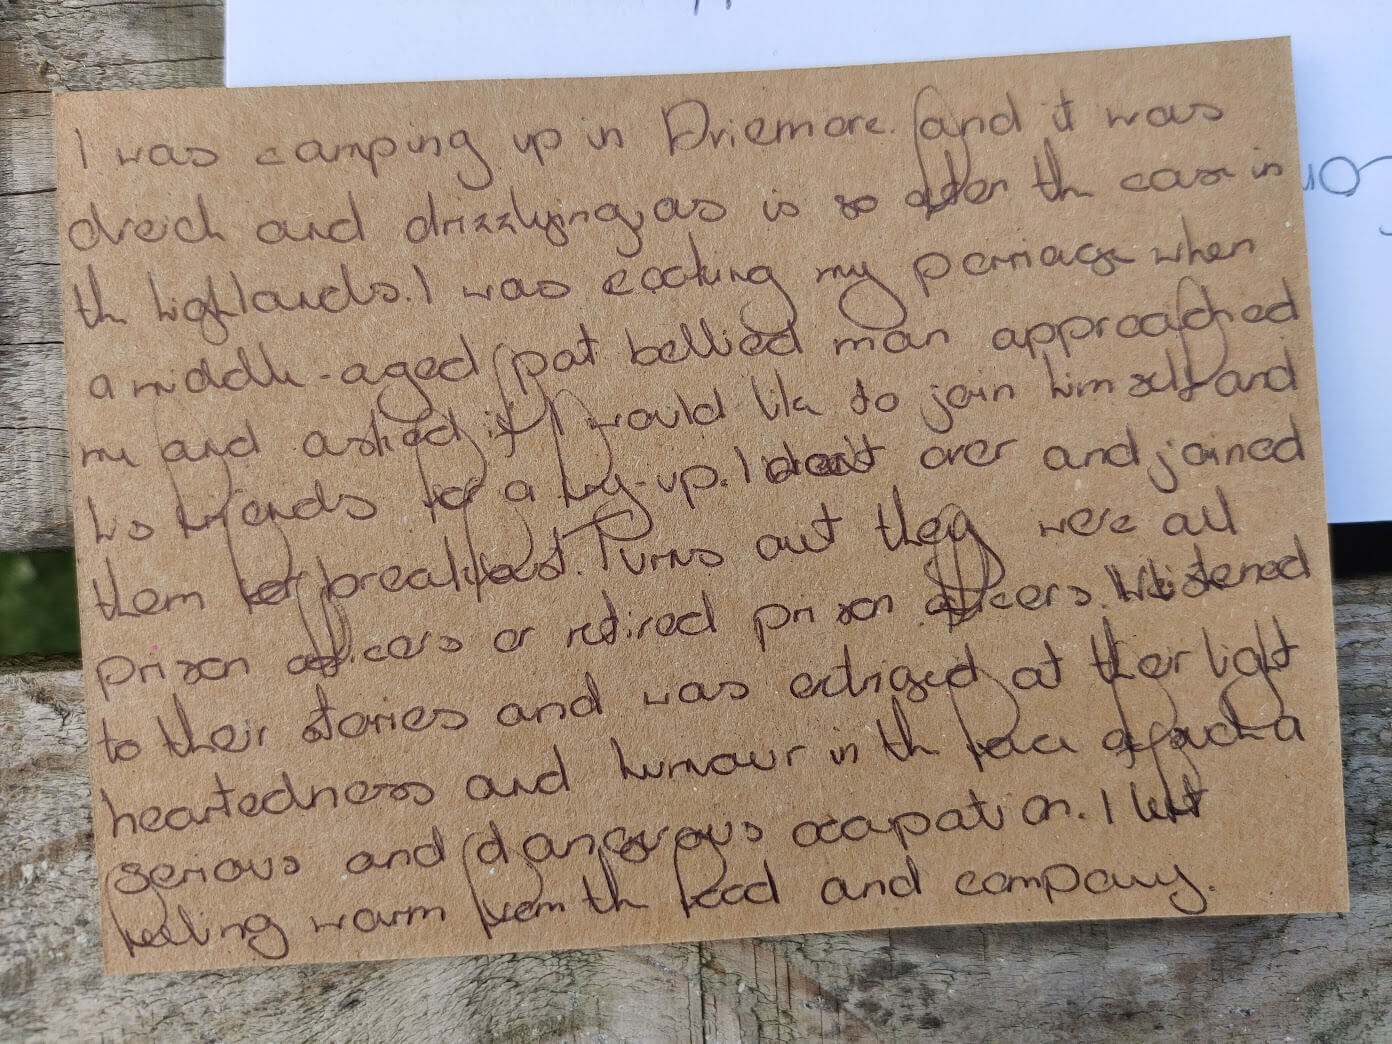 I was camping up in Driemore. and it was
dreich and drizzlying, as is so often the case in
the highlands. I was cooking my porriage when
a middle-aged pot bellied man approached
me and asked if I would like to join himself and
his friends for a fry-up. I went over and joined
them for breakfast. Turns out they were all
prison officers or retired prison officers. I listened
to their stories and was at their light
heartedness and humour in the face of such a
serious and dangerous occupation. I left
feeling warm from the food and company.